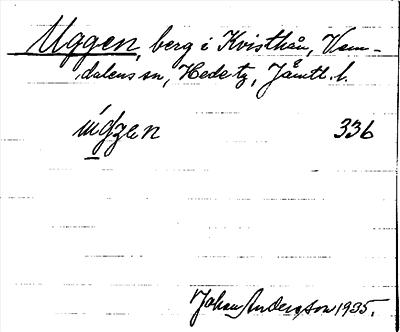 Uggen, berg i Kvisthån, Vem-
dalens sn, Hede tg, Jämtl. l.
ùgzen 336
Johan Andersson 1935.